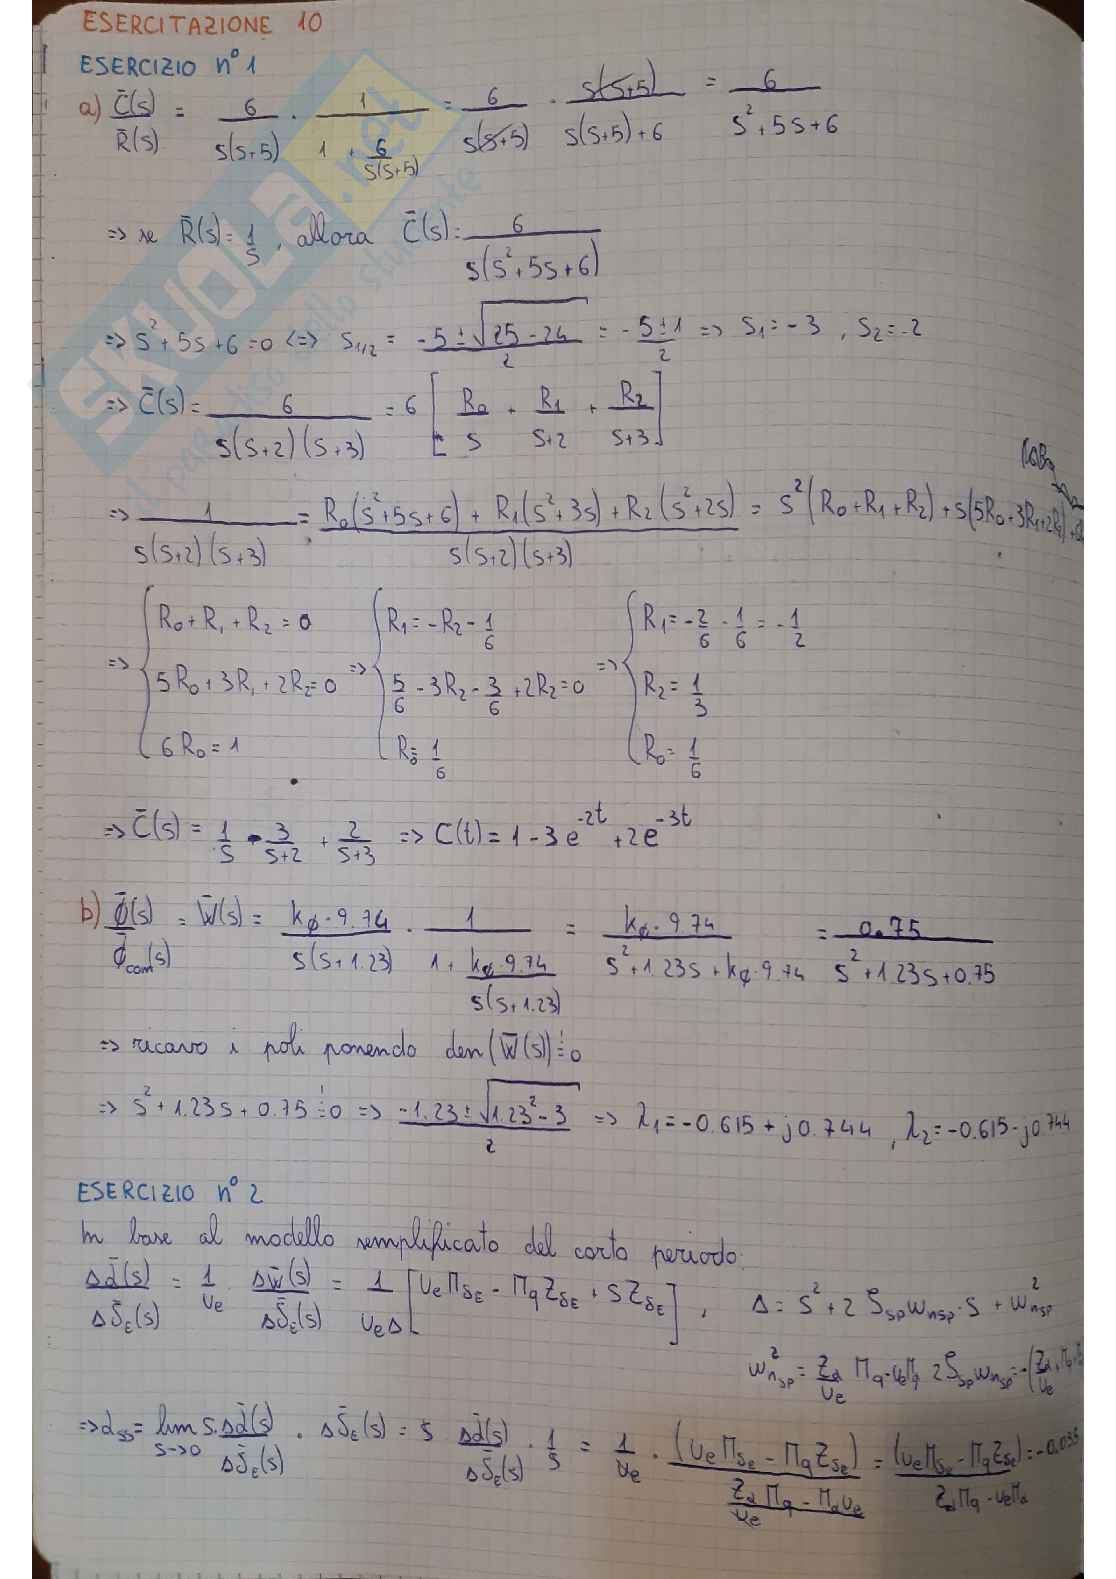 ESERCITAZIONE 10
ESERCIZIO n° 1
a) C̄(s)/R̄(s) = 6/(s(s+5)) · 1/(1 + 6/(s(s+5))) = 6/(s(s+5)) · s(s+5)/(s(s+5)+6) = 6/(s²+5s+6)
=> se R̄(s) = 1/s, allora C̄(s) = 6/(s(s²+5s+6))
=> s²+5s+6=0 <=> s₁,₂ = (-5±√(25-24))/2 = (-5±1)/2 => s₁=-3, s₂=-2
=> C̄(s) = 6/(s(s+2)(s+3)) = 6 [R₀/s + R₁/(s+2) + R₂/(s+3)]
=> 1/(s(s+2)(s+3)) = (R₀(s²+5s+6) + R₁(s²+3s) + R₂(s²+2s))/(s(s+2)(s+3)) = s²(R₀+R₁+R₂) + s(5R₀+3R₁+2R₂)+
=> { R₀+R₁+R₂=0 => { R₁=-R₂-1/6 => { R₁=-2/6-1/6=-1/2
5R₀+3R₁+2R₂=0 5/6-3R₂-3/6+2R₂=0 R₂=1/3
6R₀=1 R₀=1/6 R₀=1/6
=> C̄(s) = 1/s - 3/(s+2) + 2/(s+3) => C(t) = 1-3e^(-2t)+2e^(-3t)
b) ϕ̄(s)/ϕ̄com(s) = W̄(s) = kϕ·9.74/(s(s+1.23)) · 1/(1+kϕ·9.74/(s(s+1.23))) = kϕ·9.74/(s²+1.23s+kϕ·9.74) = 0.75/(s²+1.23s+0.75)
=> ricavo i poli ponendo den(W̄(s)) != 0
=> s²+1.23s+0.75 != 0 => (-1.23±√(1.23²-3))/2 => λ₁=-0.615+j0.744, λ₂=-0.615-j0.744
ESERCIZIO n° 2
In base al modello semplificato del corto periodo:
Δᾱ(s)/Δδ̄E(s) = 1/Ue Δw̄(s)/Δδ̄E(s) = 1/(UeΔ) [UeMδE - MqZδE + sZδE], Δ = s²+2ζspωnsp·s+ω²nsp
ω²nsp = Zα/Ue Mq-UeMα 2ζspωnsp=-(Zα/Ue
=> αss = lim s->0 s·Δᾱ(s)/Δδ̄E(s) · Δδ̄E(s) = s Δᾱ(s)/Δδ̄E(s) · 1/s = 1/Ue · (UeMδe - MqZδe)/(Zα/Ue Mq - MαUe) = (UeMδe - MqZδe)/(ZαMq - UeMα) = -0.035
SKUOLA.net
il paradiso dello studente